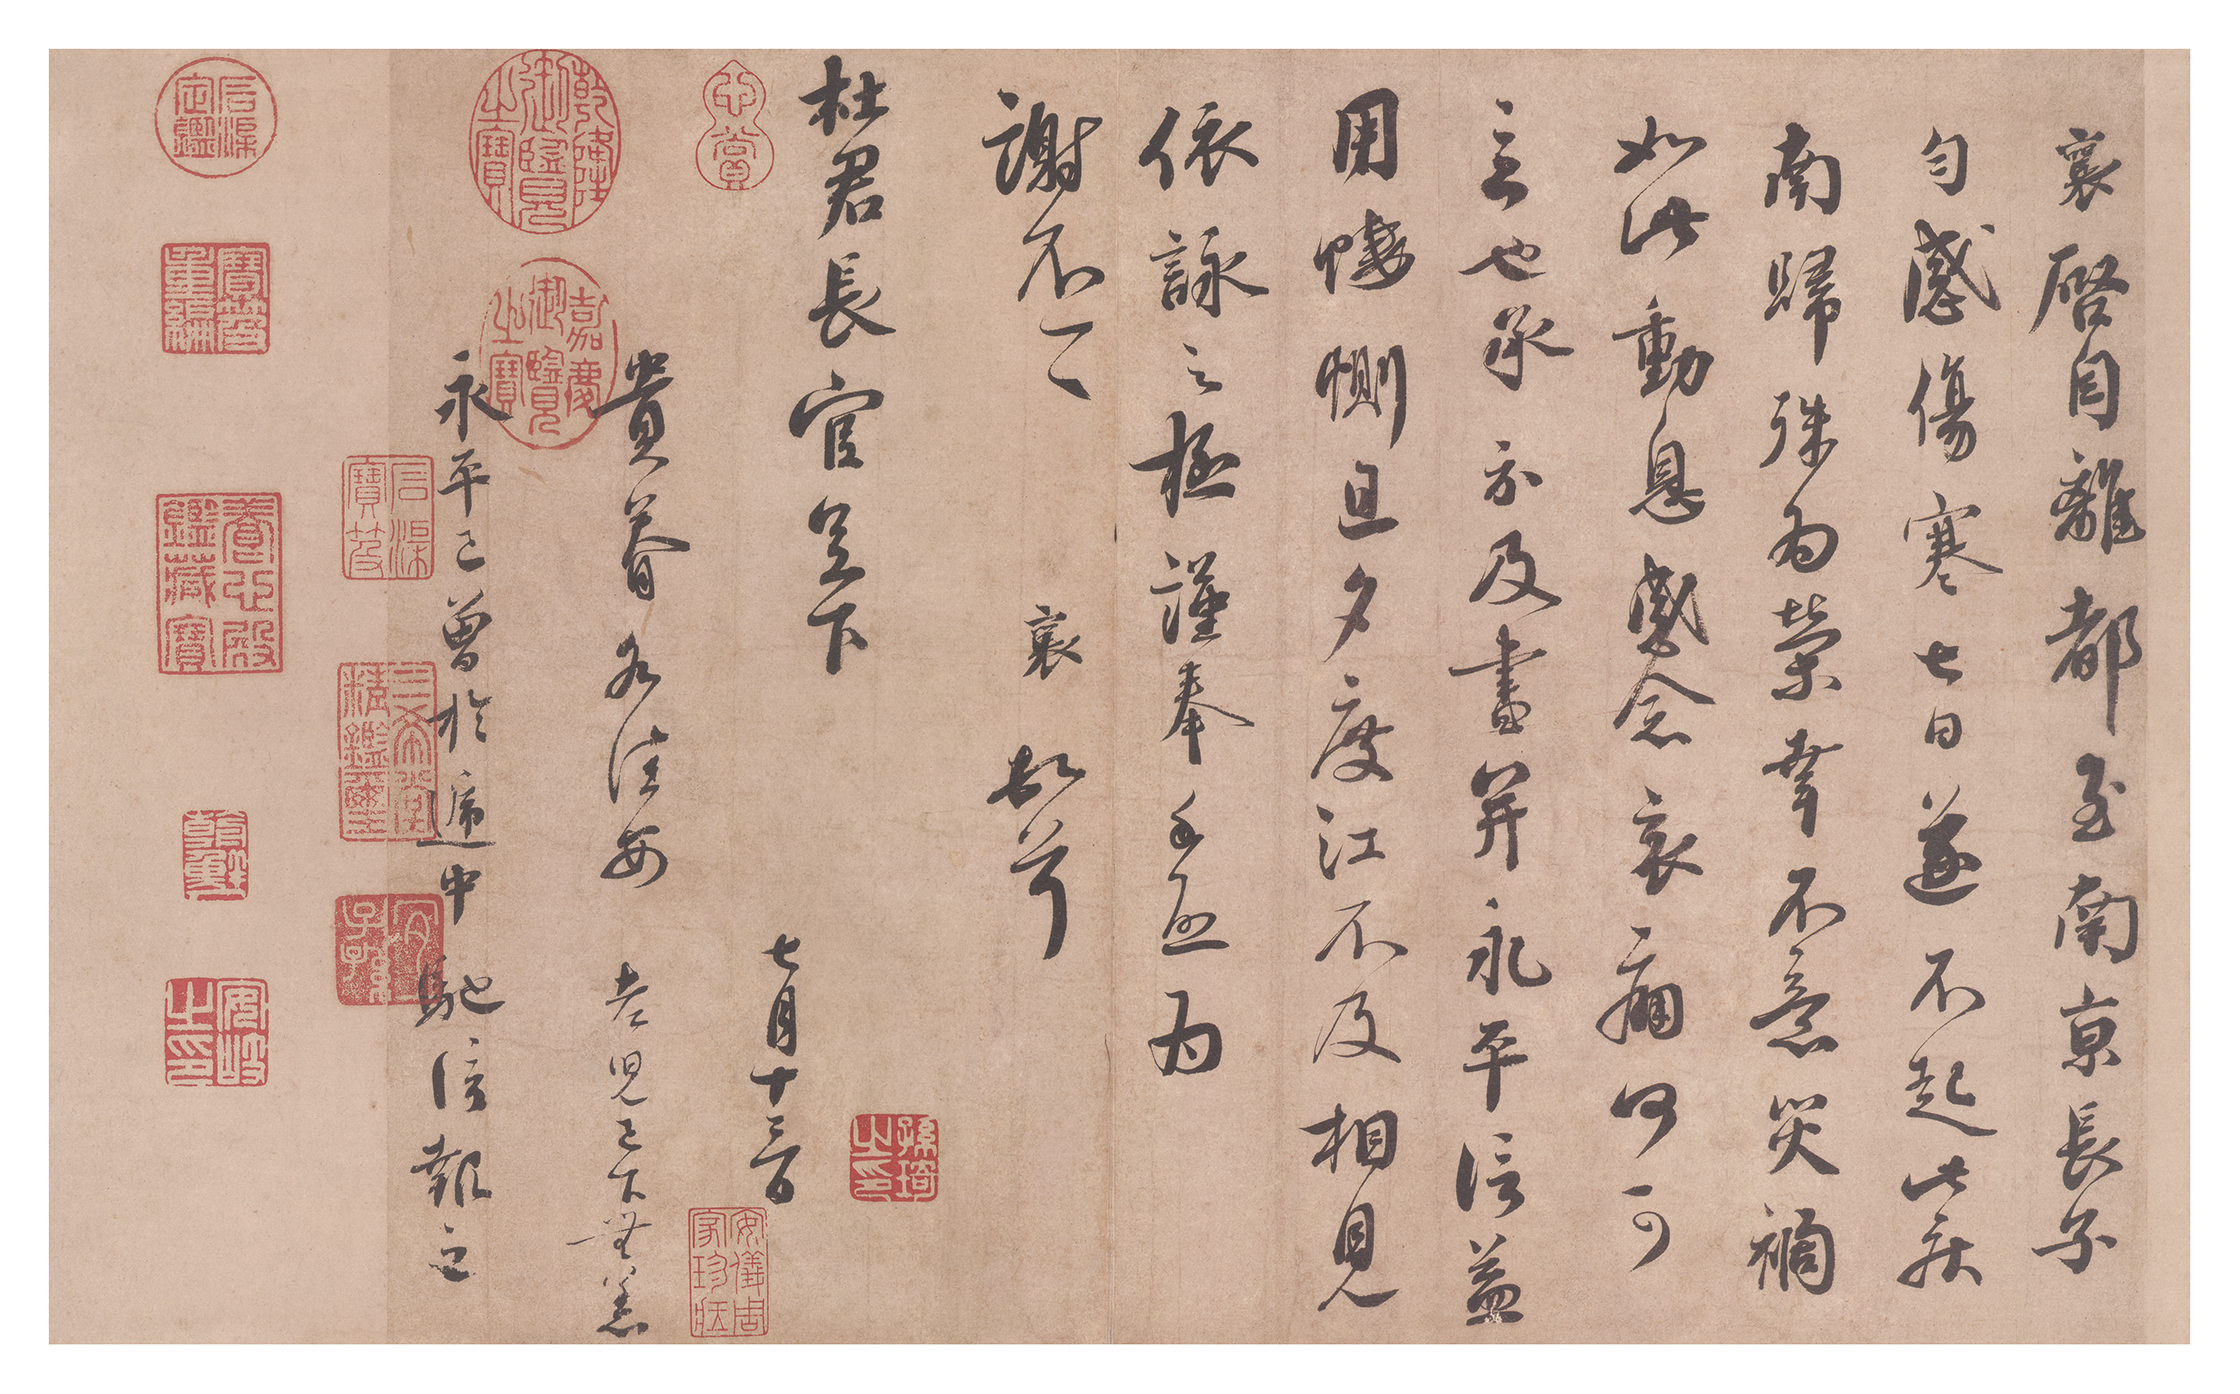 襄啓自離都至南京長子
勻感傷寒七日遂不起此疾
南歸殊為榮幸不意災禍
如此動息感念哀痛何可
言也承示及書并永平信益
用悽惻旦夕度江不及相見
依詠之極謹奉手啓為
謝不一一
襄頓首
杜君長官足下
七月十三日
貴眷各佳安老兒已下無恙
永平已曾於遞中馳信報之
心賞
乾隆御覽之寶
嘉慶御覽之寶
石渠寶笈
三希堂精鑑璽
宜子孫
石渠定鑑
寶笈重編
養心殿鑑藏寶
安岐之印
孫琦之印
安儀周家珍藏